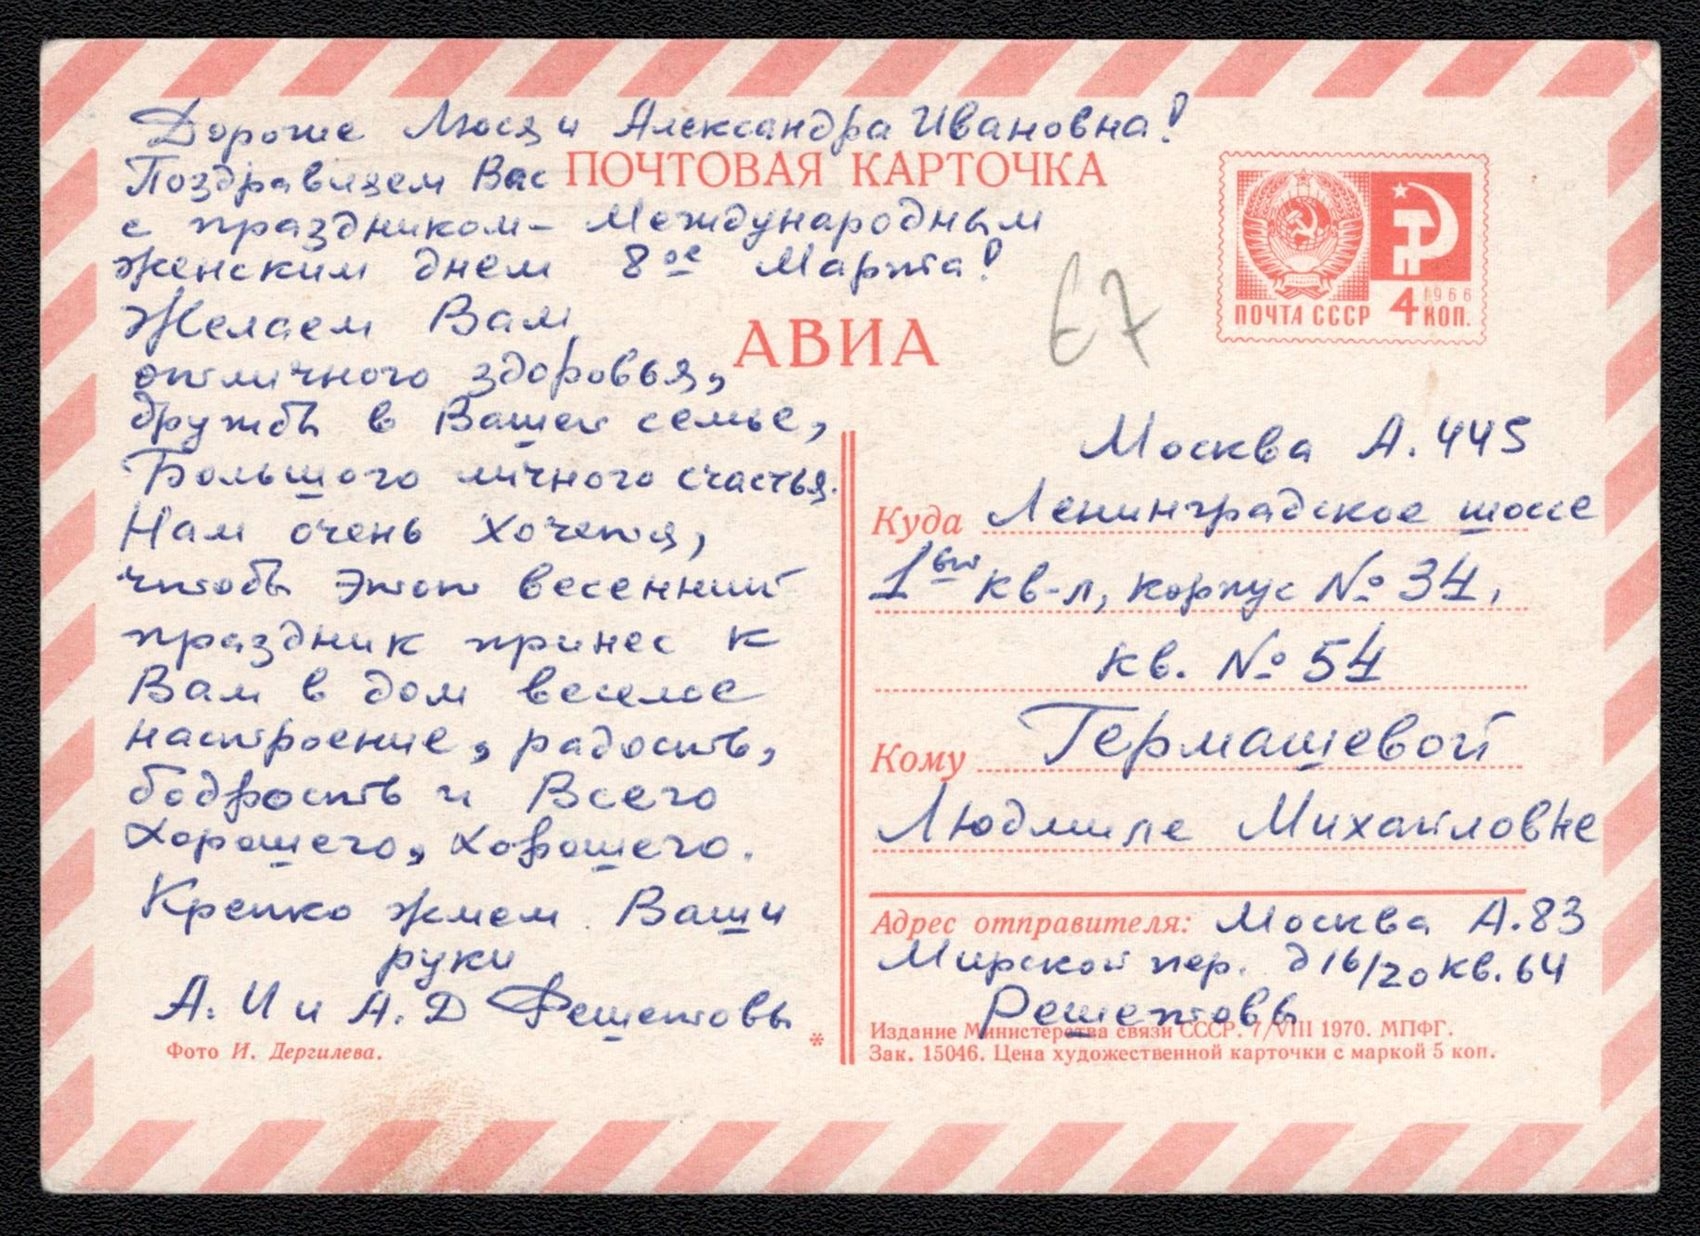 Дорогие Люся и Александра Ивановна!
Поздравляем Вас
ПОЧТОВАЯ КАРТОЧКА
с праздником – Международным
женским днем 8ое Марта!
Желаем Вам
отличного здоровья,
дружбы в Вашей семье,
Большого личного счастья.
Нам очень хочется,
чтобы этот весенний
праздник принес к
Вам в дом веселое
настроение, радость,
бодрость и Всего
Хорошего, Хорошего.
Крепко жмем Ваши
руки
А. И и А. Д Решетовы
Фото И. Дергилева.
*
АВИА
67
ПОЧТА СССР 4 КОП.
1966
Москва А. 445
Куда Ленинградское шоссе
1ый кв-л, корпус № 34,
кв. № 54
Кому Гермашевой
Людмиле Михайловне
Адрес отправителя: Москва А. 83
Мирской пер. д 16/20 кв. 64
Решетовы
Издание Министерства связи СССР. 7/VIII 1970. МПФГ.
Зак. 15046. Цена художественной карточки с маркой 5 коп.